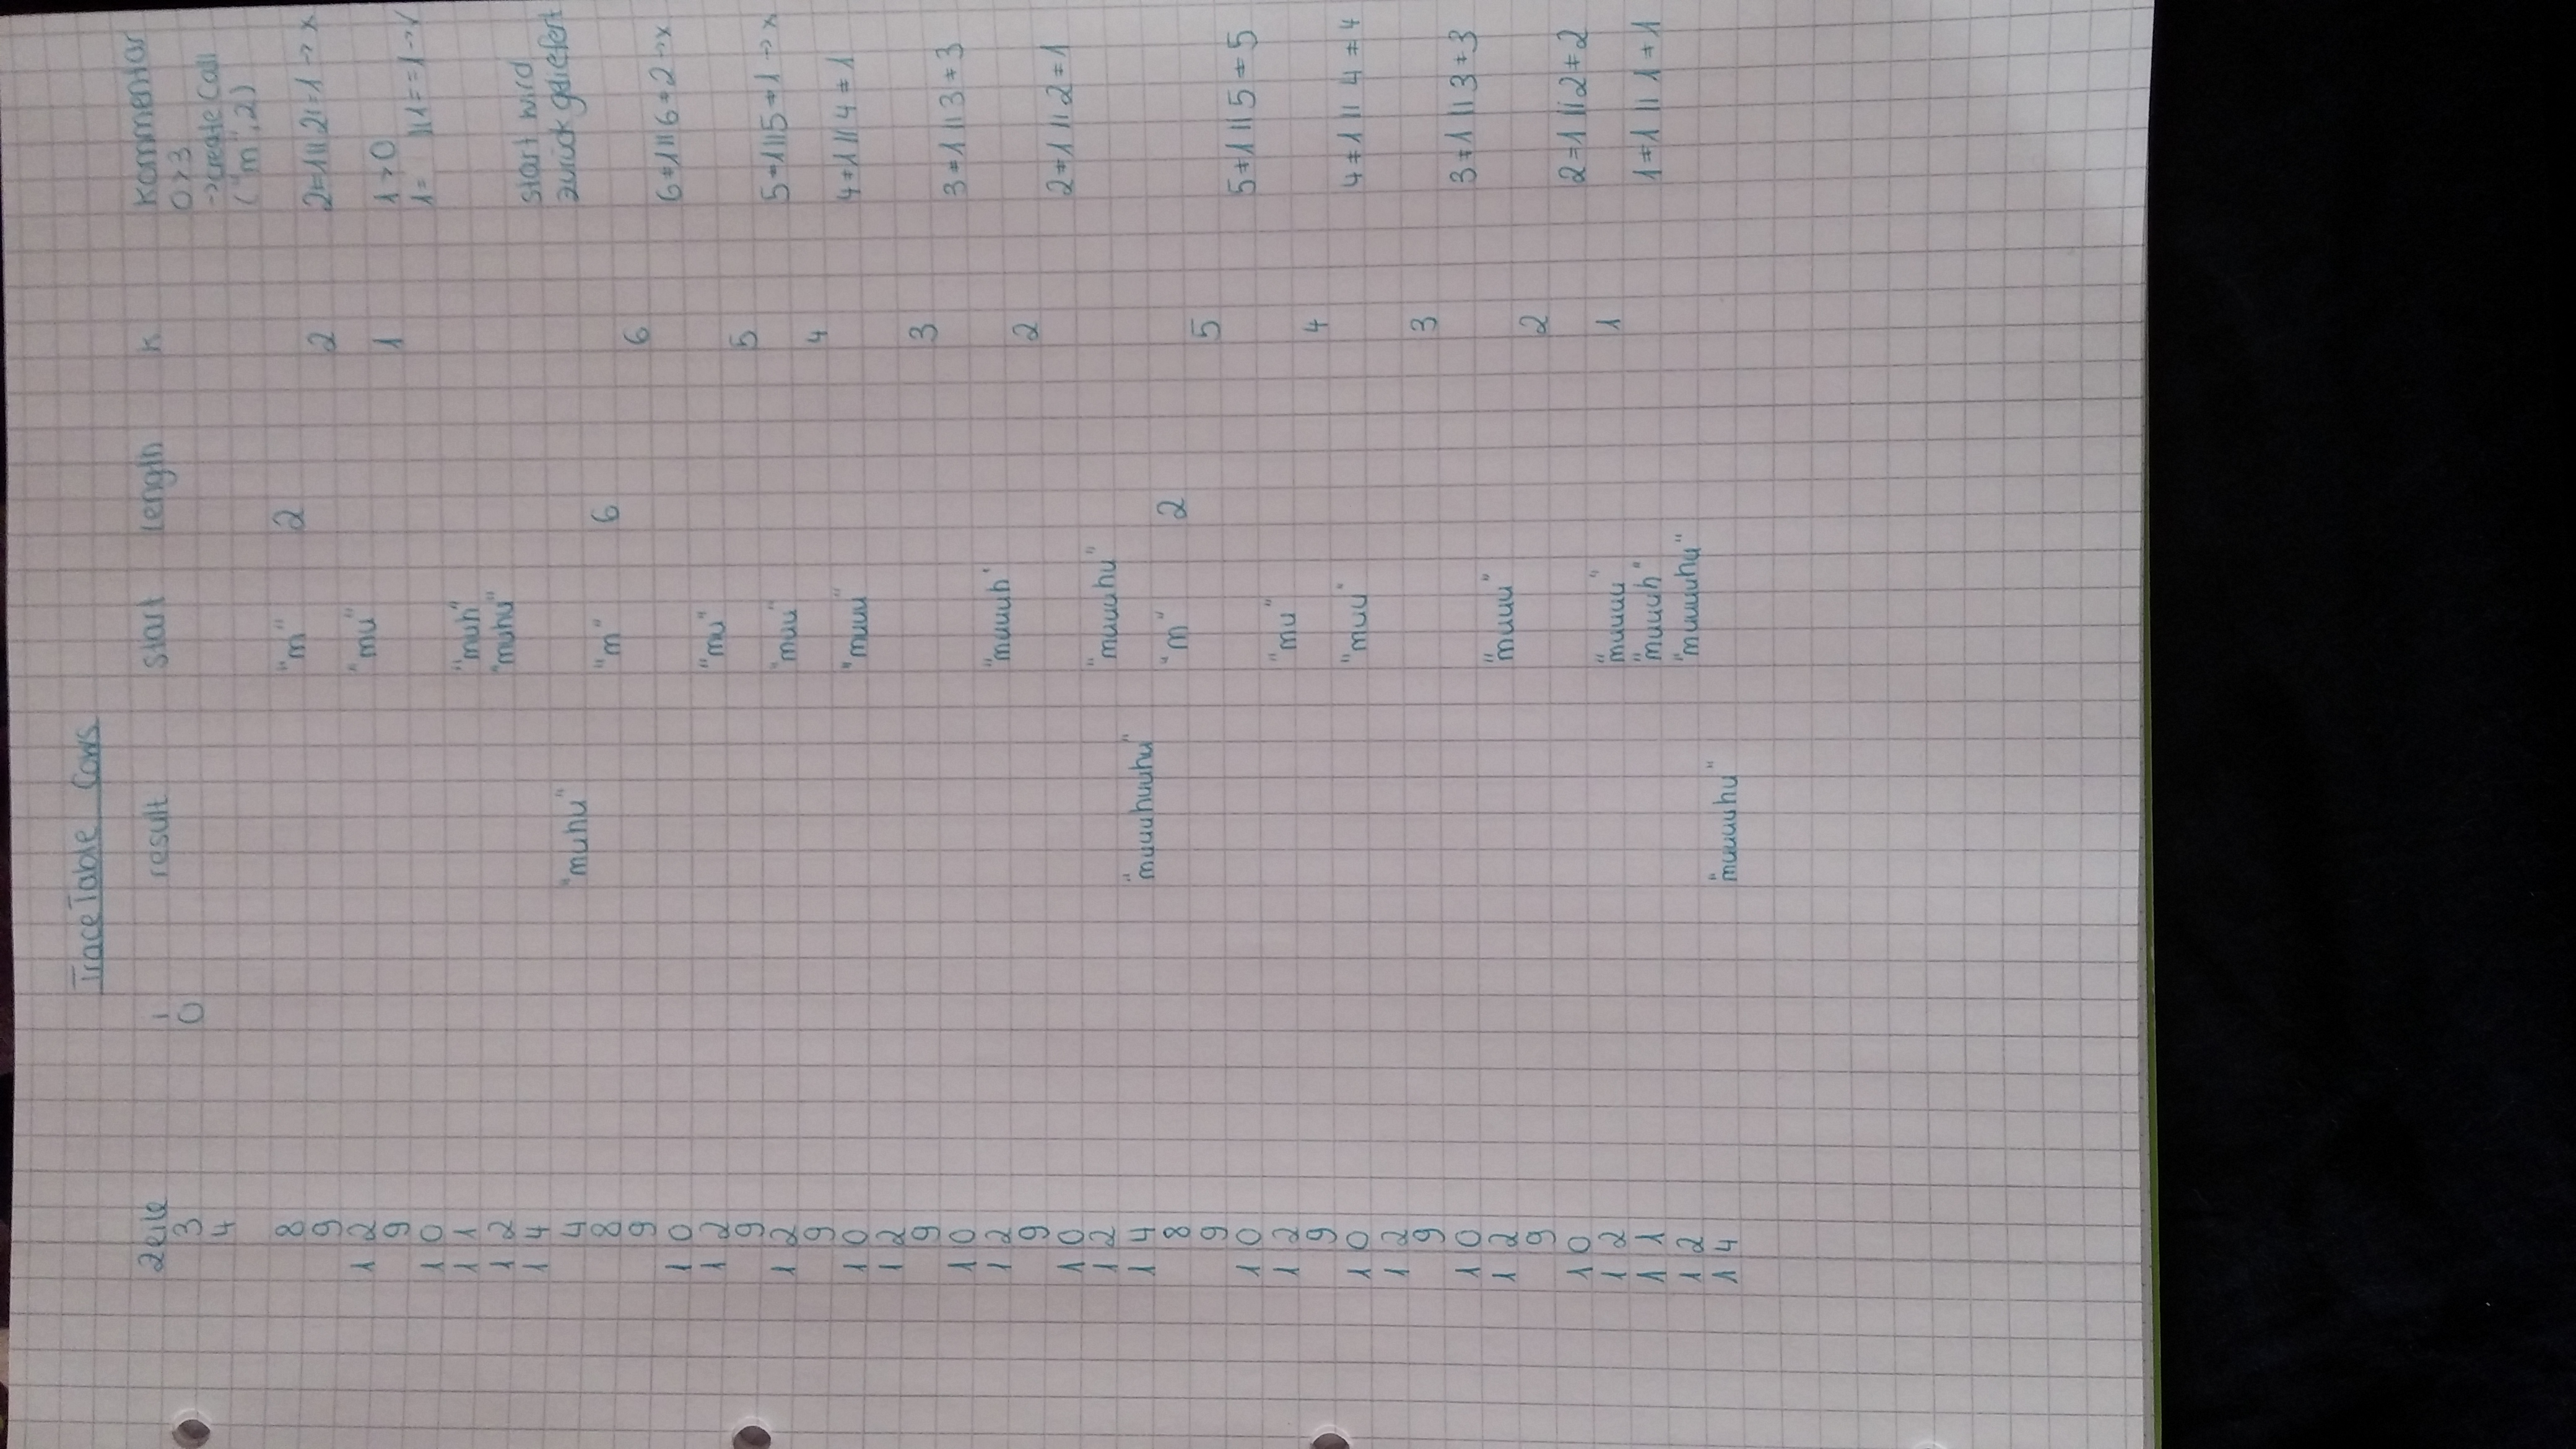 TraceTable Cows
Zeile i result start length k Kommentar
3 0 0>3
4 ->create Call
("m",2)
8 "m" 2
9 2 2=1||2!=1 -> x
12 "mu"
9 1 1>0
10 1= ||1==1->✓
11 "muh"
12 "muhu"
14 start wird
4 "muhu" zurück geliefert
8 "m" 6
9 6
10 6=1||6=2->x
12 "mu"
9 5
12 "muu" 5=1||5=1->x
9 4
10 "muuu" 4=1||4=1
12
9 3
10 3=1||3=3
12 "muuuh"
9 2
10 2=1||2=1
12 "muuuhu"
14 "muuuhuuhu"
8 "m" 2
9 5
10 5=1||5=5
12 "mu"
9 4
10 "muu" 4=1||4=4
12
9 3
10 3=1||3=3
12 "muuu"
9 2
10 2=1||2=2
12 "muuuu" 1
11 "muuuh" 1=1||1=1
12 "muuuuhu"
14 "muuuuhu"